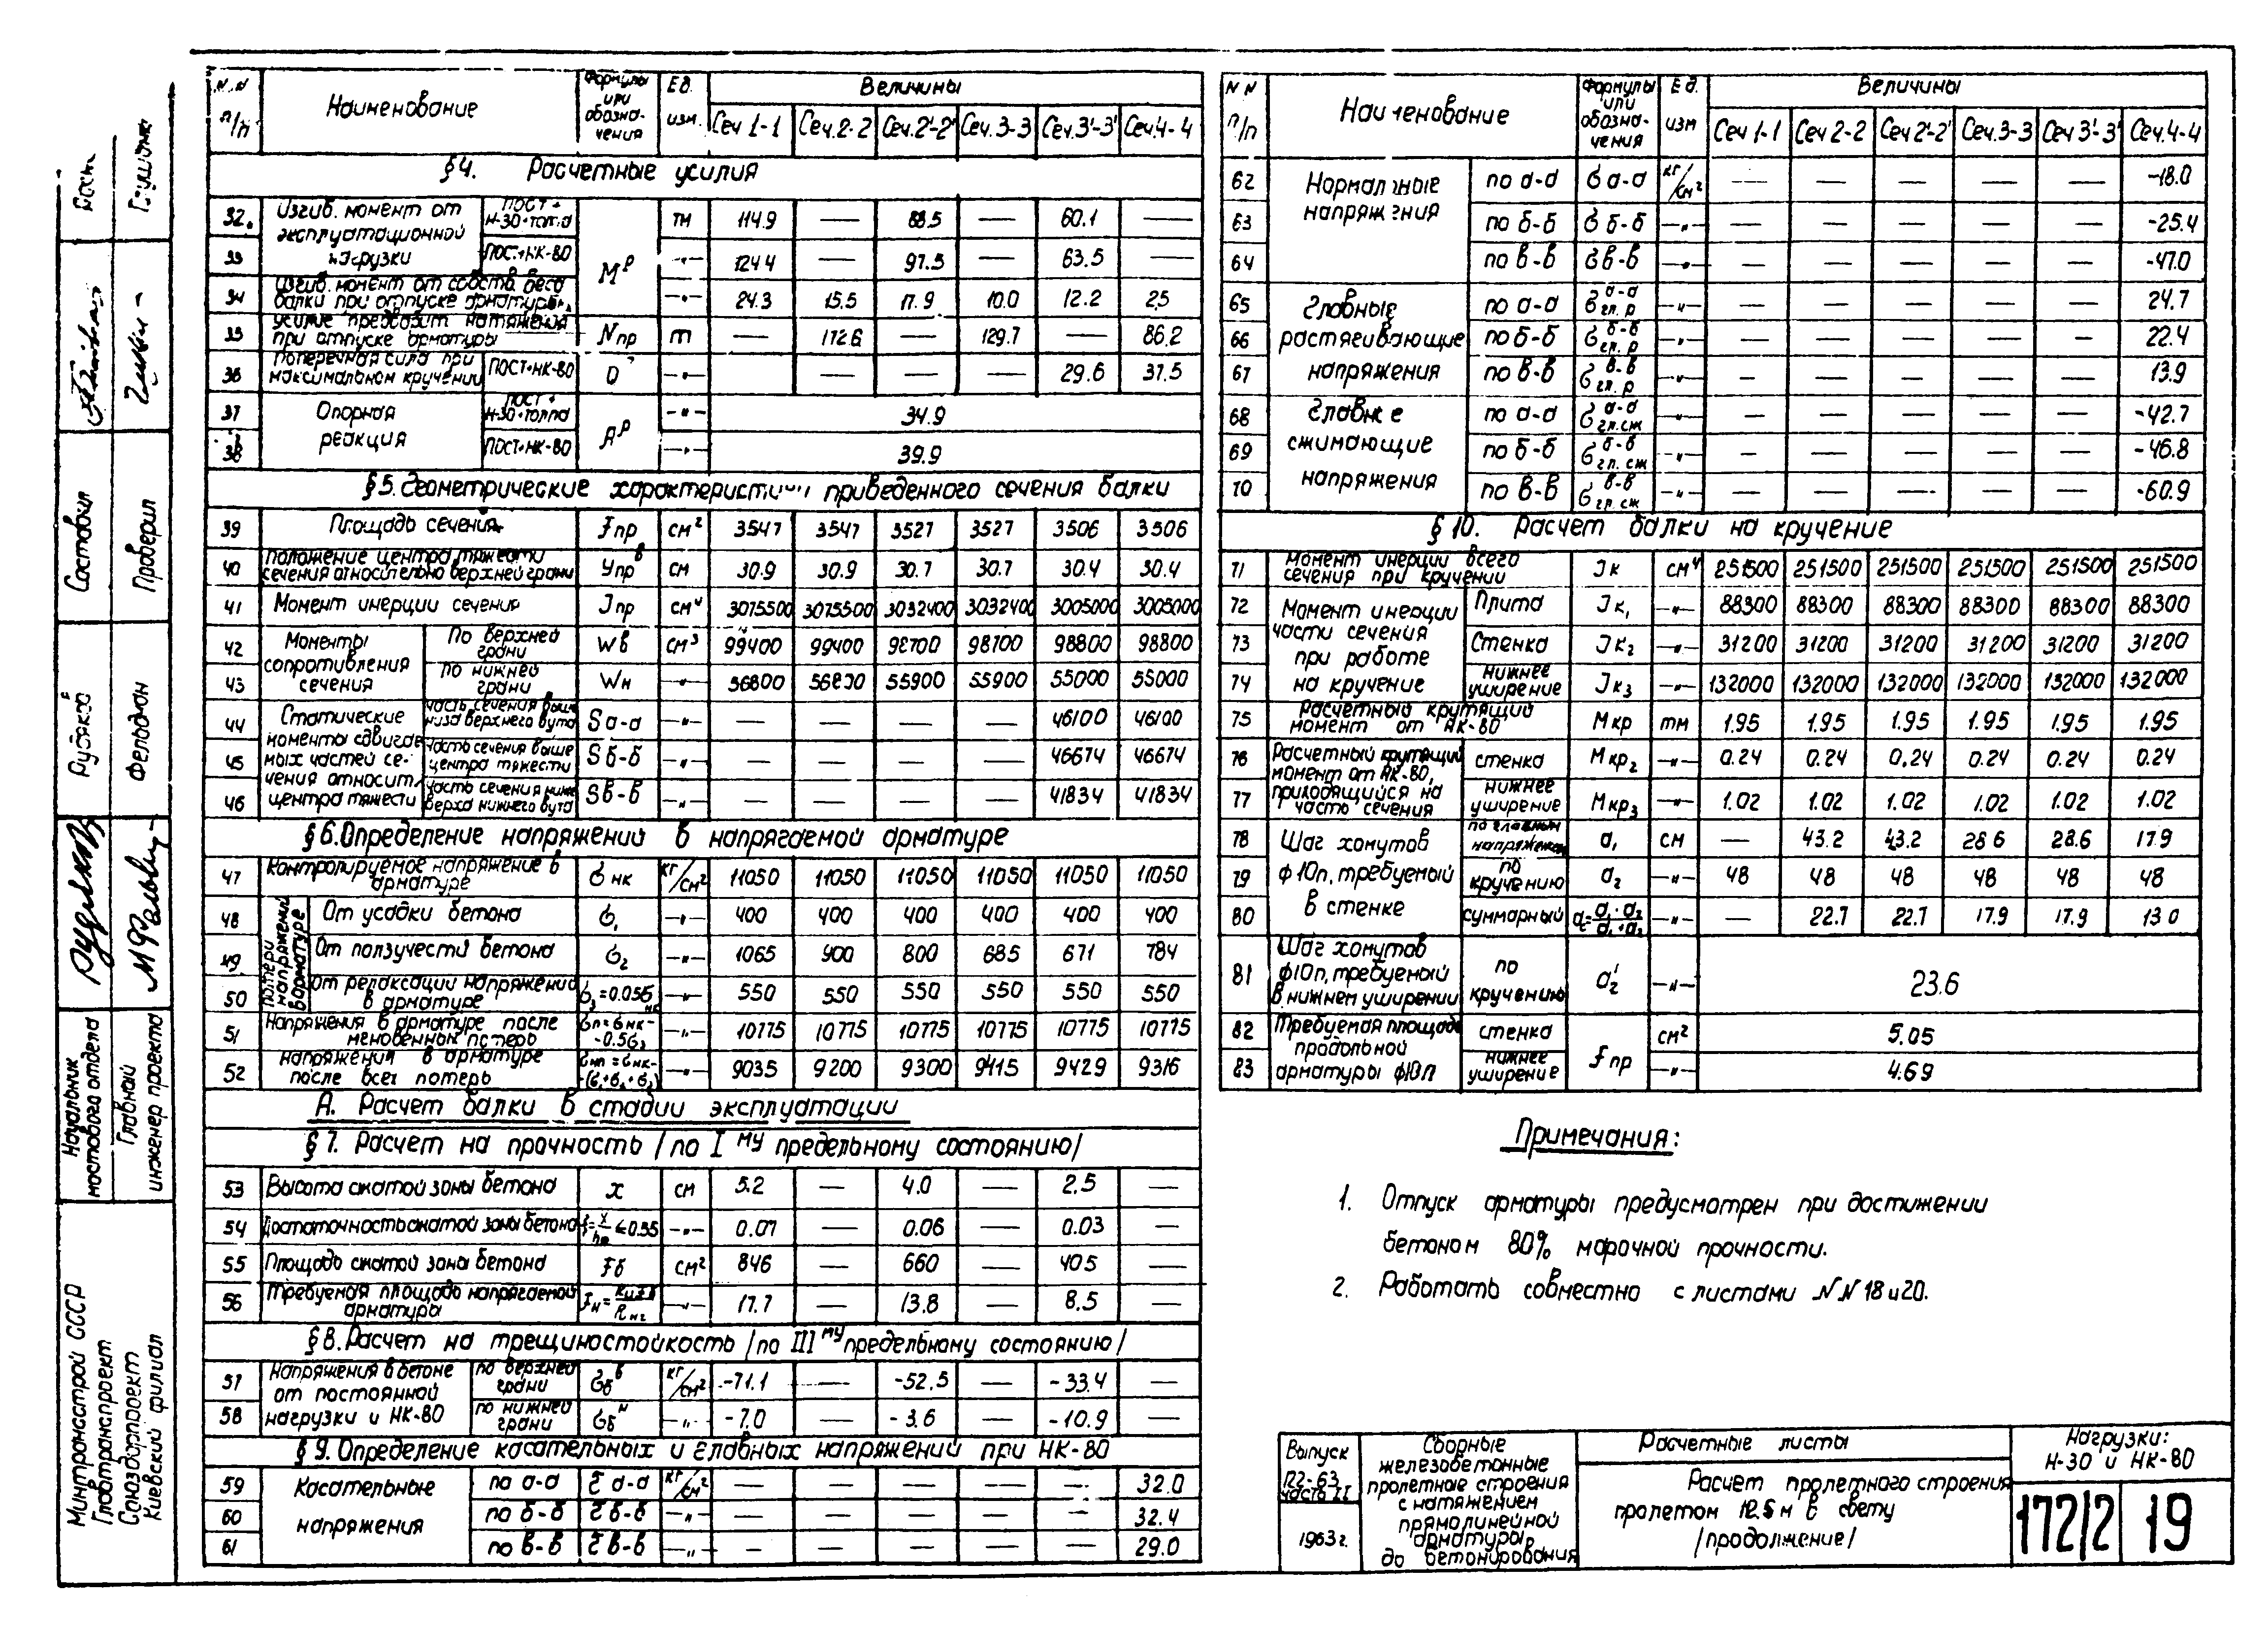 N.N п/п | Наименование | Формулы или обозначения | Ед. изм. | Величины
Сеч 1-1 | Сеч.2-2 | Сеч.2'-2' | Сеч.3-3 | Сеч.3'-3' | Сеч.4-4
§4. Расчетные усилия
32. | Изгиб. момент от эксплуатационной нагрузки | ПОСТ+Н-30+толпа | Mᵖ | тм | 114.9 | — | 88.5 | — | 60.1 | —
33 | ПОСТ+НК-80 | -"- | 124.4 | — | 97.5 | — | 63.5 | —
34 | Изгиб. момент от собств. веса балки при отпуске арматуры | -"- | 24.3 | 15.5 | 17.9 | 10.0 | 12.2 | 2.5
35 | Усилие предварит натяжения при отпуске арматуры | Nпр | т | — | 172.6 | — | 129.7 | — | 86.2
36 | Поперечная сила при максимальном кручении | ПОСТ+НК-80 | -"- | — | — | — | — | 29.6 | 37.5
37 | Опорная реакция | ПОСТ+Н-30+толпа | Aᵖ | -"- | 34.9
38 | ПОСТ+НК-80 | -"- | 39.9
§5. Геометрические характеристики приведенного сечения балки
39 | Площадь сечения | Fпр | см² | 3547 | 3547 | 3527 | 3527 | 3506 | 3506
40 | Положение центра тяжести сечения относительно верхней грани | Yпрᵇ | см | 30.9 | 30.9 | 30.7 | 30.7 | 30.4 | 30.4
41 | Момент инерции сечения | Jпр | см⁴ | 3075500 | 3075500 | 3032400 | 3032400 | 3005000 | 3005000
42 | Моменты сопротивления сечения | По верхней грани | Wв | см³ | 99400 | 99400 | 98700 | 98700 | 98800 | 98800
43 | По нижней грани | Wн | -"- | 56800 | 56800 | 55900 | 55900 | 55000 | 55000
44 | Статические моменты сдвигаемых частей сечения относит. центра тяжести | часть сечения выше низа верхнего вута | Sа-а | -"- | — | — | — | — | 46100 | 46100
45 | часть сечения выше центра тяжести | Sб-б | -"- | — | — | — | — | 46674 | 46674
46 | часть сечения ниже верха нижнего вута | Sв-в | -"- | — | — | — | — | 41834 | 41834
§6. Определение напряжений в напрягаемой арматуре
47 | Контролируемое напряжение в арматуре | σнк | кг/см² | 11050 | 11050 | 11050 | 11050 | 11050 | 11050
48 | Потери напряжений в арматуре | От усадки бетона | σ₁ | -"- | 400 | 400 | 400 | 400 | 400 | 400
49 | От ползучести бетона | σ₂ | -"- | 1065 | 900 | 800 | 685 | 671 | 784
50 | От релаксации напряжений в арматуре | σ₃=0.05σнк | -"- | 550 | 550 | 550 | 550 | 550 | 550
51 | Напряжения в арматуре после мгновенных потерь | σп=σнк-0.5σ₃ | -"- | 10775 | 10775 | 10775 | 10775 | 10775 | 10775
52 | напряжения в арматуре после всех потерь | -"- | 9035 | 9200 | 9300 | 9415 | 9429 | 9316
А. Расчет балки в стадии эксплуатации
§7. Расчет на прочность /по I му предельному состоянию/
53 | Высота сжатой зоны бетона | x | см | 5.2 | — | 4.0 | — | 2.5 | —
54 | Достаточность сжатой зоны бетона | ξ=x/h₀≤0.55 | -"- | 0.07 | — | 0.06 | — | 0.03 | —
55 | Площадь сжатой зоны бетона | Fб | см² | 846 | — | 660 | — | 405 | —
56 | Требуемая площадь напрягаемой арматуры | -"- | 17.7 | — | 13.8 | — | 8.5 | —
§8. Расчет на трещиностойкость /по III му предельному состоянию/
57 | Напряжения в бетоне от постоянной нагрузки и НК-80 | по верхней грани | σбᵇ | кг/см² | -71.1 | — | -52.5 | — | -33.4 | —
58 | по нижней грани | σбᴴ | -"- | -7.0 | — | -3.6 | — | -10.9 | —
§9. Определение касательных и главных напряжений при НК-80
59 | Касательные напряжения | по а-а | τ а-а | кг/см² | — | — | — | — | — | 32.0
60 | по б-б | τ б-б | -"- | — | — | — | — | — | 32.4
61 | по в-в | τ в-в | -"- | — | — | — | — | — | 29.0
NN п/п | Наименование | Формулы или обозначения | Ед. изм | Величины
Сеч 1-1 | Сеч 2-2 | Сеч 2'-2' | Сеч.3-3 | Сеч 3'-3' | Сеч.4-4
62 | Нормальные напряжения | по а-а | σ а-а | кг/см² | — | — | — | — | — | -18.0
63 | по б-б | σ б-б | -"- | — | — | — | — | — | -25.4
64 | по в-в | σв-в | -"- | — | — | — | — | — | -47.0
65 | Главные растягивающие напряжения | по а-а | σ а-а гл.р | -"- | — | — | — | — | — | 24.7
66 | по б-б | σ б-б гл.р | -"- | — | — | — | — | — | 22.4
67 | по в-в | σ в-в гл.р | -"- | — | — | — | — | — | 13.9
68 | Главные сжимающие напряжения | по а-а | σ а-а гл.сж | -"- | — | — | — | — | — | -42.7
69 | по б-б | σ б-б гл.сж | -"- | — | — | — | — | — | -46.8
70 | по в-в | σ в-в гл.сж | -"- | — | — | — | — | — | -60.9
§10. Расчет балки на кручение
71 | Момент инерции всего сечения при кручении | Jк | см⁴ | 251500 | 251500 | 251500 | 251500 | 251500 | 251500
72 | Момент инерции части сечения при работе на кручение | Плита | Jк₁ | -"- | 88300 | 88300 | 88300 | 88300 | 88300 | 88300
73 | Стенка | Jк₂ | -"- | 31200 | 31200 | 31200 | 31200 | 31200 | 31200
74 | Нижнее уширение | Jк₃ | -"- | 132000 | 132000 | 132000 | 132000 | 132000 | 132000
75 | Расчетный крутящий момент от НК-80 | Мкр | тм | 1.95 | 1.95 | 1.95 | 1.95 | 1.95 | 1.95
76 | Расчетный крутящий момент от НК-80, приходящийся на часть сечения | стенка | Мкр₂ | -"- | 0.24 | 0.24 | 0.24 | 0.24 | 0.24 | 0.24
77 | нижнее уширение | Мкр₃ | -"- | 1.02 | 1.02 | 1.02 | 1.02 | 1.02 | 1.02
78 | Шаг хомутов ф10п, требуемый в стенке | по главным напряжениям | a₁ | см | — | 43.2 | 43.2 | 28.6 | 28.6 | 17.9
79 | по кручению | a₂ | -"- | 48 | 48 | 48 | 48 | 48 | 48
80 | суммарный | a=a₁·a₂/a₁+a₂ | -"- | — | 22.7 | 22.7 | 17.9 | 17.9 | 13.0
81 | Шаг хомутов ф10п, требуемый в нижнем уширении | по кручению | a'₂ | -"- | 23.6
82 | Требуемая площадь продольной арматуры ф10п | стенка | Fпр | см² | 5.05
83 | нижнее уширение | -"- | 4.69
Примечания:
1. Отпуск арматуры предусмотрен при достижении
бетоном 80% марочной прочности.
2. Работать совместно с листами NN 18 и 20.
Выпуск
122-63
часть II
1963 г.
Сборные
железобетонные
пролетные строения
с натяжением
прямолинейной
арматуры
до бетонирования
Расчетные листы
Расчет пролетного строения
пролетом 12.5 м в свету
/продолжение/
Нагрузки:
Н-30 и НК-80
172/2
19
Составил
Проверил
Рудяков
Фельдман
Начальник
мостового отдела
Главный
инженер проекта
Минтрансстрой СССР
Главтранспроект
Союздорпроект
Киевский филиал